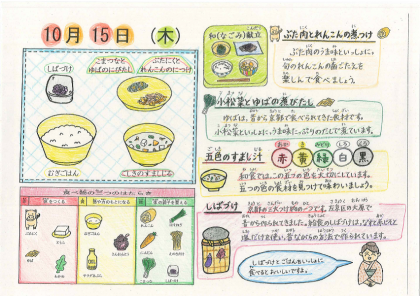 10月15日（木）
しばづけ
こまつなと
ゆばのにびたし
ぶたにくと
れんこんのにつけ
むぎごはん
ごしきのすましじる
食べ物の三つのはたらき
和(なごみ)献立
ぶた肉とれんこんの煮つけ
ぶた肉のうま味といっしょに。
旬のれんこんの歯ごたえを
楽しんで食べましょう。
小松菜とゆばの煮びたし
ゆばは、昔から京都で食べられてきた食材です。
小松菜といっしょに、うま味たっぷりのだしで煮ています。
五色のすまし汁
赤 黄 緑 白 黒
和食では、この五つの色を大切にしています。
五つの色の食材を見つけて味わいましょう。
しばづけ
京都の三大つけ物の一つで、左京区の大原で
昔から作られてきました。給食のしばづけは、なすと赤じそと
塩だけを使い、昔ながらの方法で作られています。
しばづけとごはんをいっしょに
食べるとおいしいですよ。